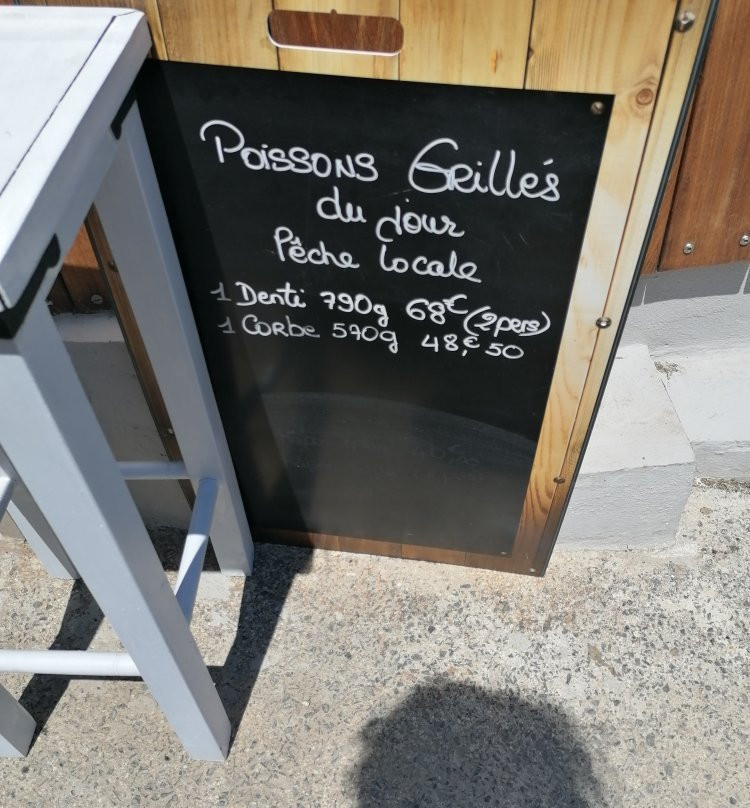 Poissons Grillés
du jour
Pêche locale
1 Denti 790g 68€ (2pers)
1 Corbe 570g 48,€50